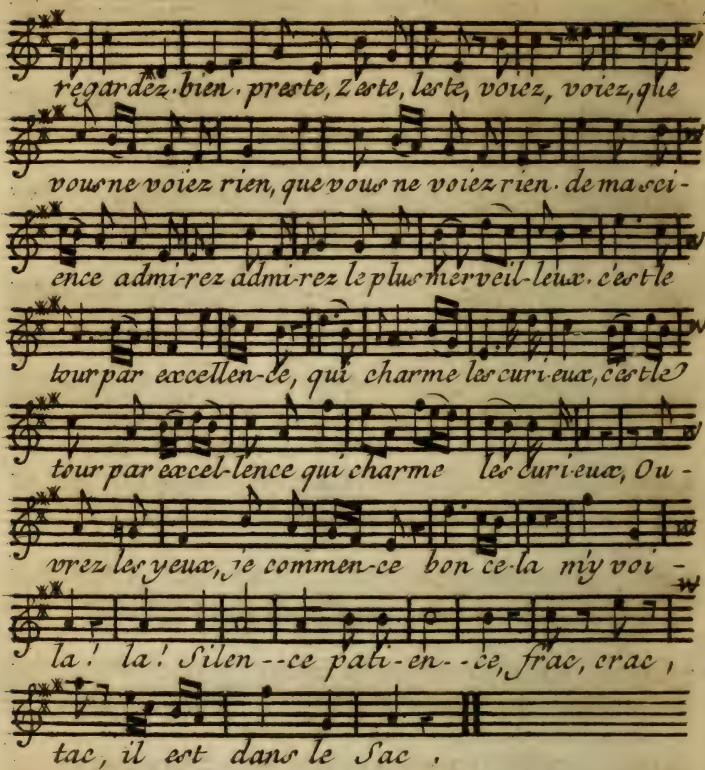 regardez bien. preste, Zeste, leste, voiez, voiez, que
vous ne voiez rien, que vous ne voiez rien. de ma sci-
ence admi-rez admi-rez le plus merveil-leux. c'est le
tour par excellen-ce, qui charme les curi-eux, c'est le
tour par excel-lence qui charme les curi-eux, Ou-
vrez les yeux, je commen-ce bon ce-la m'y voi-
la! la! Silen--ce pati-en--ce, frac, crac,
tac, il est dans le Sac.